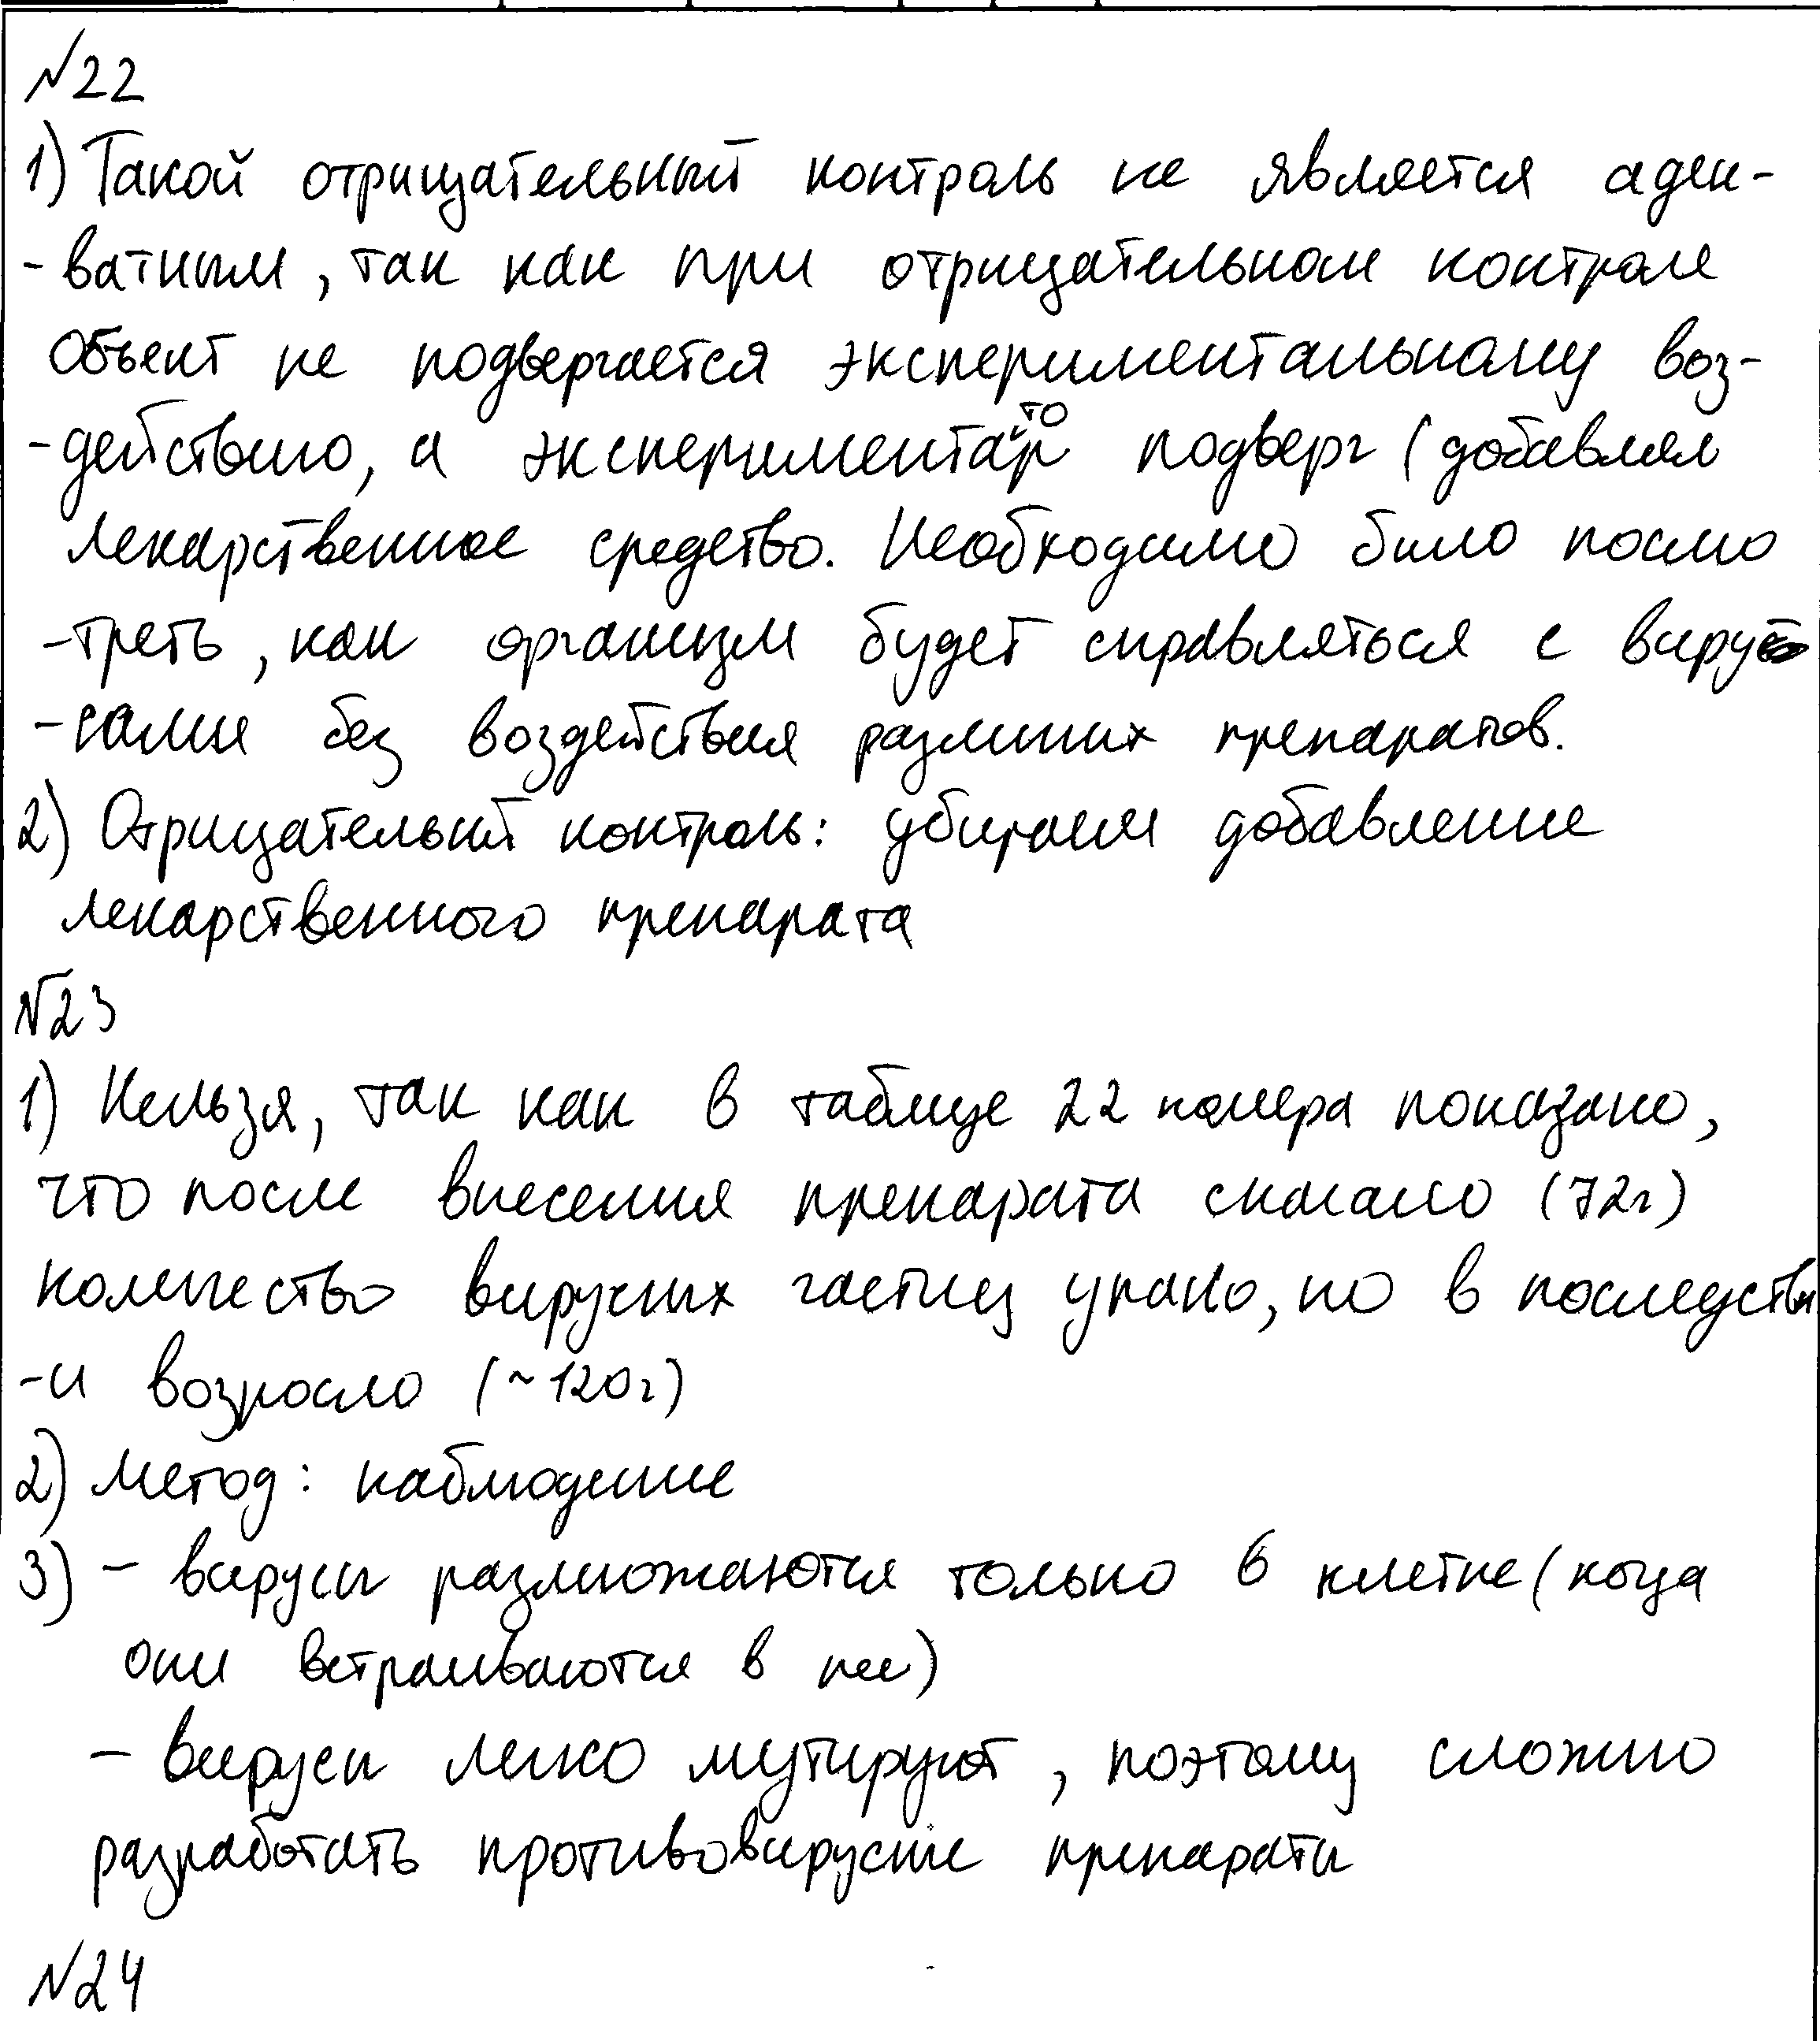 №22
1) Такой отрицательный контроль не является адек-
-ватным, так как при отрицательном контроле
объект не подвергается экспериментальному воз-
-действию, а экспериментатор подверг (добавлял
лекарственное средство. Необходимо было посмо
-треть, как организм будет справляться с виру
-сами без воздействия различных препаратов.
2) Отрицательный контроль: убираем добавление
лекарственного препарата
№23
1) Нельзя, так как в таблице 22 номера показано,
что после внесения препарата сначало (72г)
количество вирусных частиц упало, но в последстви
-и возросло (~120г)
2) Метод: наблюдение
3) - вирусы размножаются только в клетке (когда
они встраиваются в нее)
- вирусы легко мутируют, поэтому сложно
разработать противовирусные препараты
№24